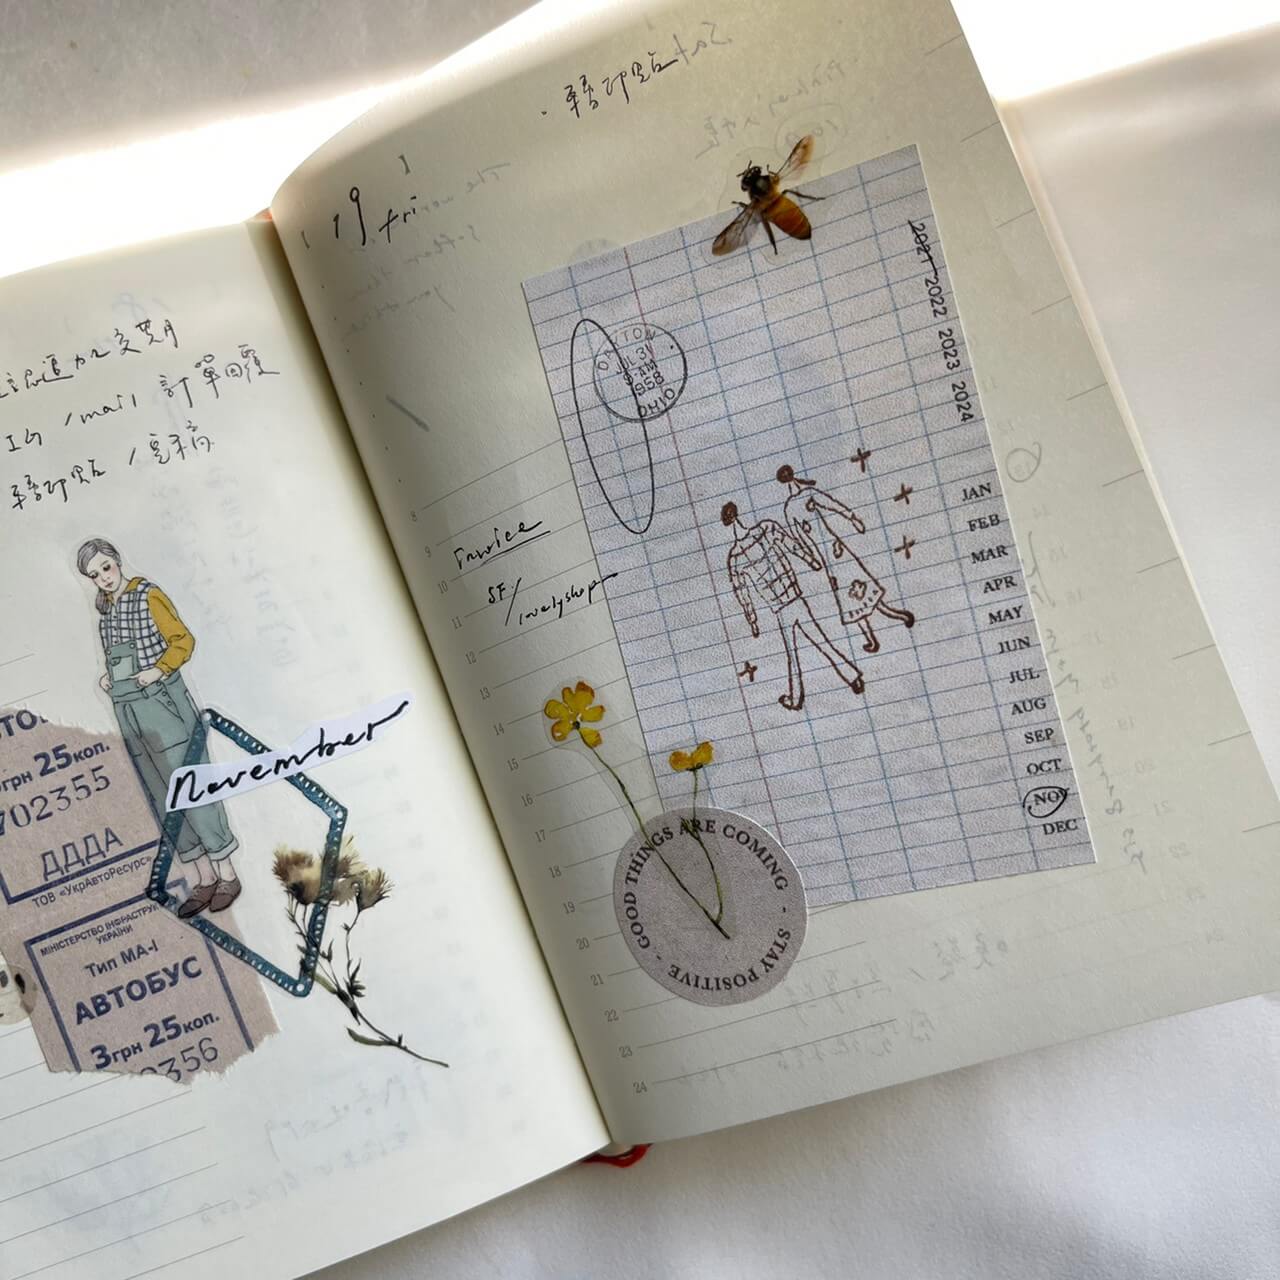 工的 / mail 訂單回覆
轉印貼 / 完稿
November
25коп.
702355
ДДДА
ТОВ «УкрАвтоРесурс»
МІНІСТЕРСТВО ІНФРАСТРУК
УКРАЇНИ
Тип МА-І
АВТОБУС
3грн 25коп.
0356
· 轉印貼
19 fri
Invoice
SF /
lovelyshop
8
9
10
11
12
13
14
15
16
17
18
19
20
21
22
23
24
DAYTON
JUL 31
9-AM
1958
OHIO
2021 2022 2023 2024
JAN
FEB
MAR
APR
MAY
JUN
JUL
AUG
SEP
OCT
NOV
DEC
GOOD THINGS ARE COMING - STAY POSITIVE -